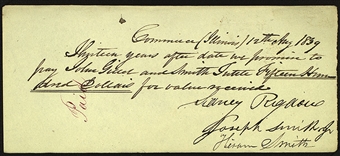 Commerce (Illinois) 12th Aug 1839
years after date we promise to
pay John Gillet and Smith Tuttle Fifteen Hun
dred Dollars for value received
Paid
Sidney Rigdon
Joseph Smith Jr
Hiram Smith